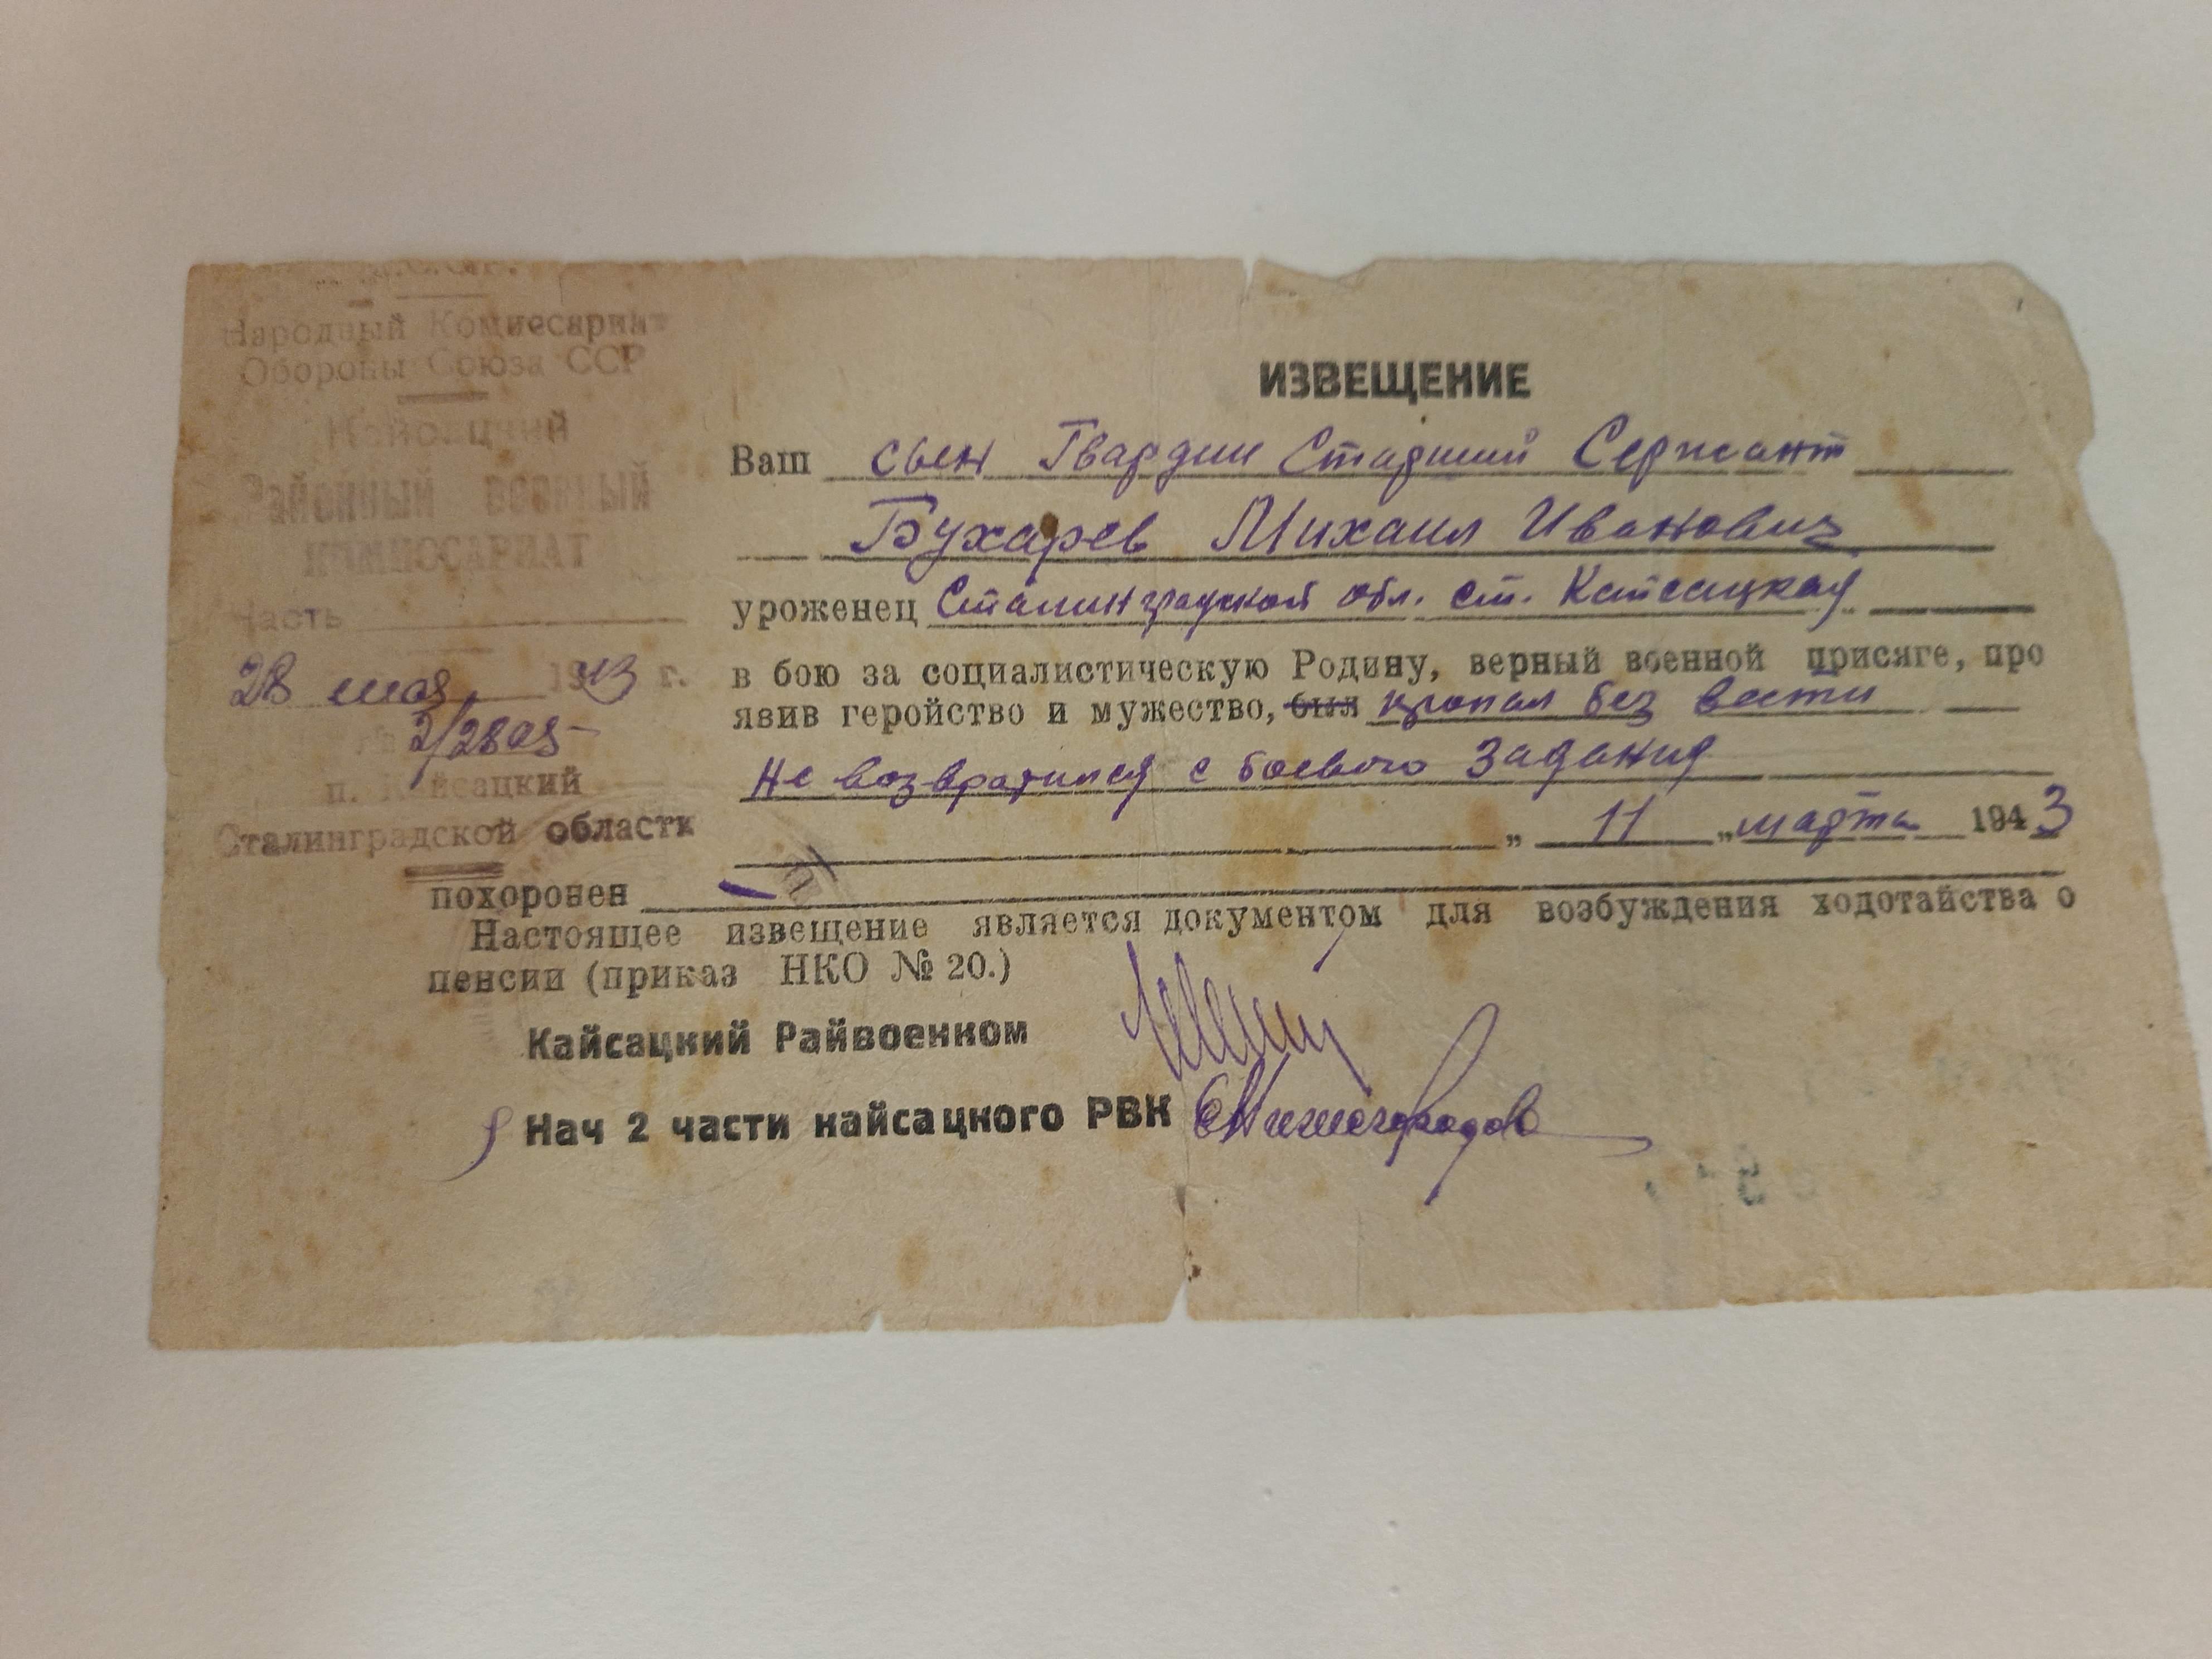 Народный Комиссариат
Обороны Союза ССР
Кайсацкий
Районный военный
КОМИССАРИАТ
Часть
28 мая 1943 г.
2/2805
п. Кайсацкий
Сталинградской области
ИЗВЕЩЕНИЕ
Ваш сын Гвардии Старший Сержант
Бухарев Михаил Иванович
уроженец Сталинградской обл. ст. Кайсацкая
в бою за социалистическую Родину, верный военной присяге, про
явив геройство и мужество, был пропал без вести
Не возвратился с боевого задания
„ 11 „ марта 1943
похоронен —
Настоящее извещение является документом для возбуждения ходотайства о
пенсии (приказ НКО № 20.)
Кайсацкий Райвоенком
Нач 2 части кайсацкого РВК